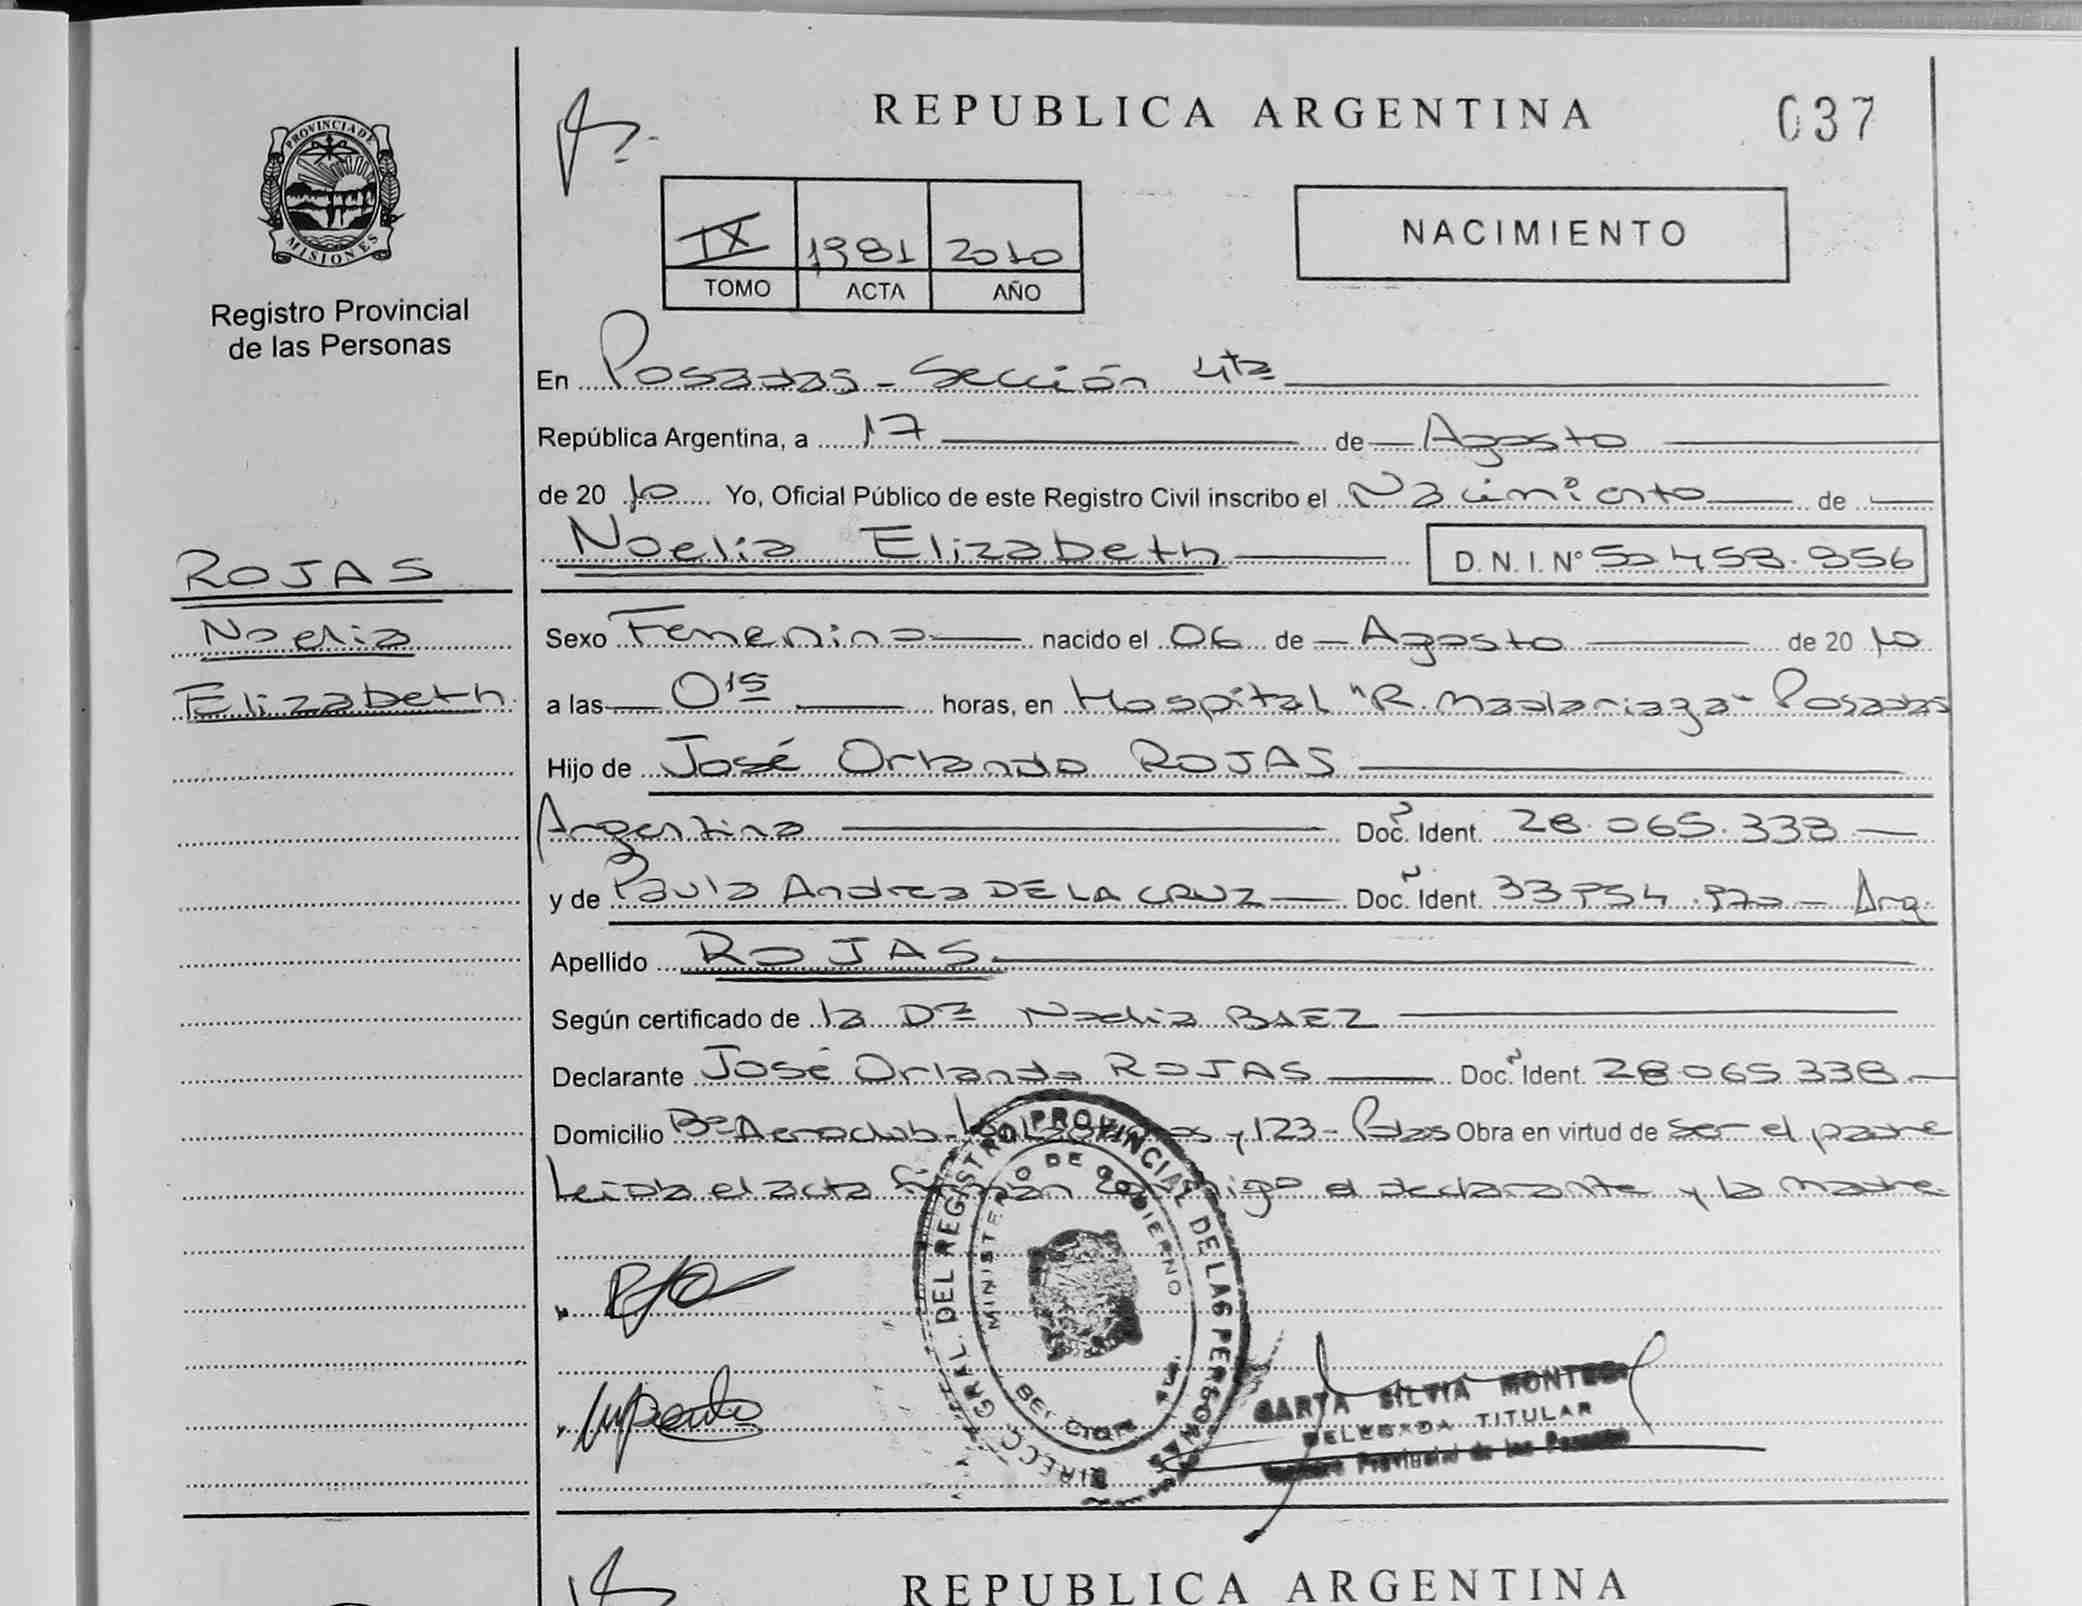 PROVINCIA DE
MISIONES
Registro Provincial
de las Personas
ROJAS
Noelia
Elizabeth
REPUBLICA ARGENTINA
037
IX 1981 2010
TOMO ACTA AÑO
NACIMIENTO
En Posadas - Sección 4ta
República Argentina, a 17 de Agosto
de 20 10 Yo, Oficial Público de este Registro Civil inscribo el Nacimiento de
Noelia Elizabeth D.N.I. Nº
Sexo Femenino nacido el 06 de Agosto de 20 10
a las 0 15 horas, en Hospital "R. Madariaga" Posadas
Hijo de José Orlando ROJAS
Argentino Doc. Ident. 28.065.338
y de Paula Andrea DE LA CRUZ Doc. Ident. Arg.
Apellido ROJAS
Según certificado de la Dra Noelia BAEZ
Declarante José Orlando ROJAS Doc. Ident. 28.065.338
Domicilio Bº Aeroclub y 123 - Pdas Obra en virtud de ser el padre
Leida el acta firman conmigo el declarante y la madre
DIRECC. GRAL. DEL REGISTRO PROVINCIAL DE LAS PERSONAS
MINISTERIO DE GOBIERNO
SILVIA
DELEGADA TITULAR
Provincial de las Personas
REPUBLICA ARGENTINA